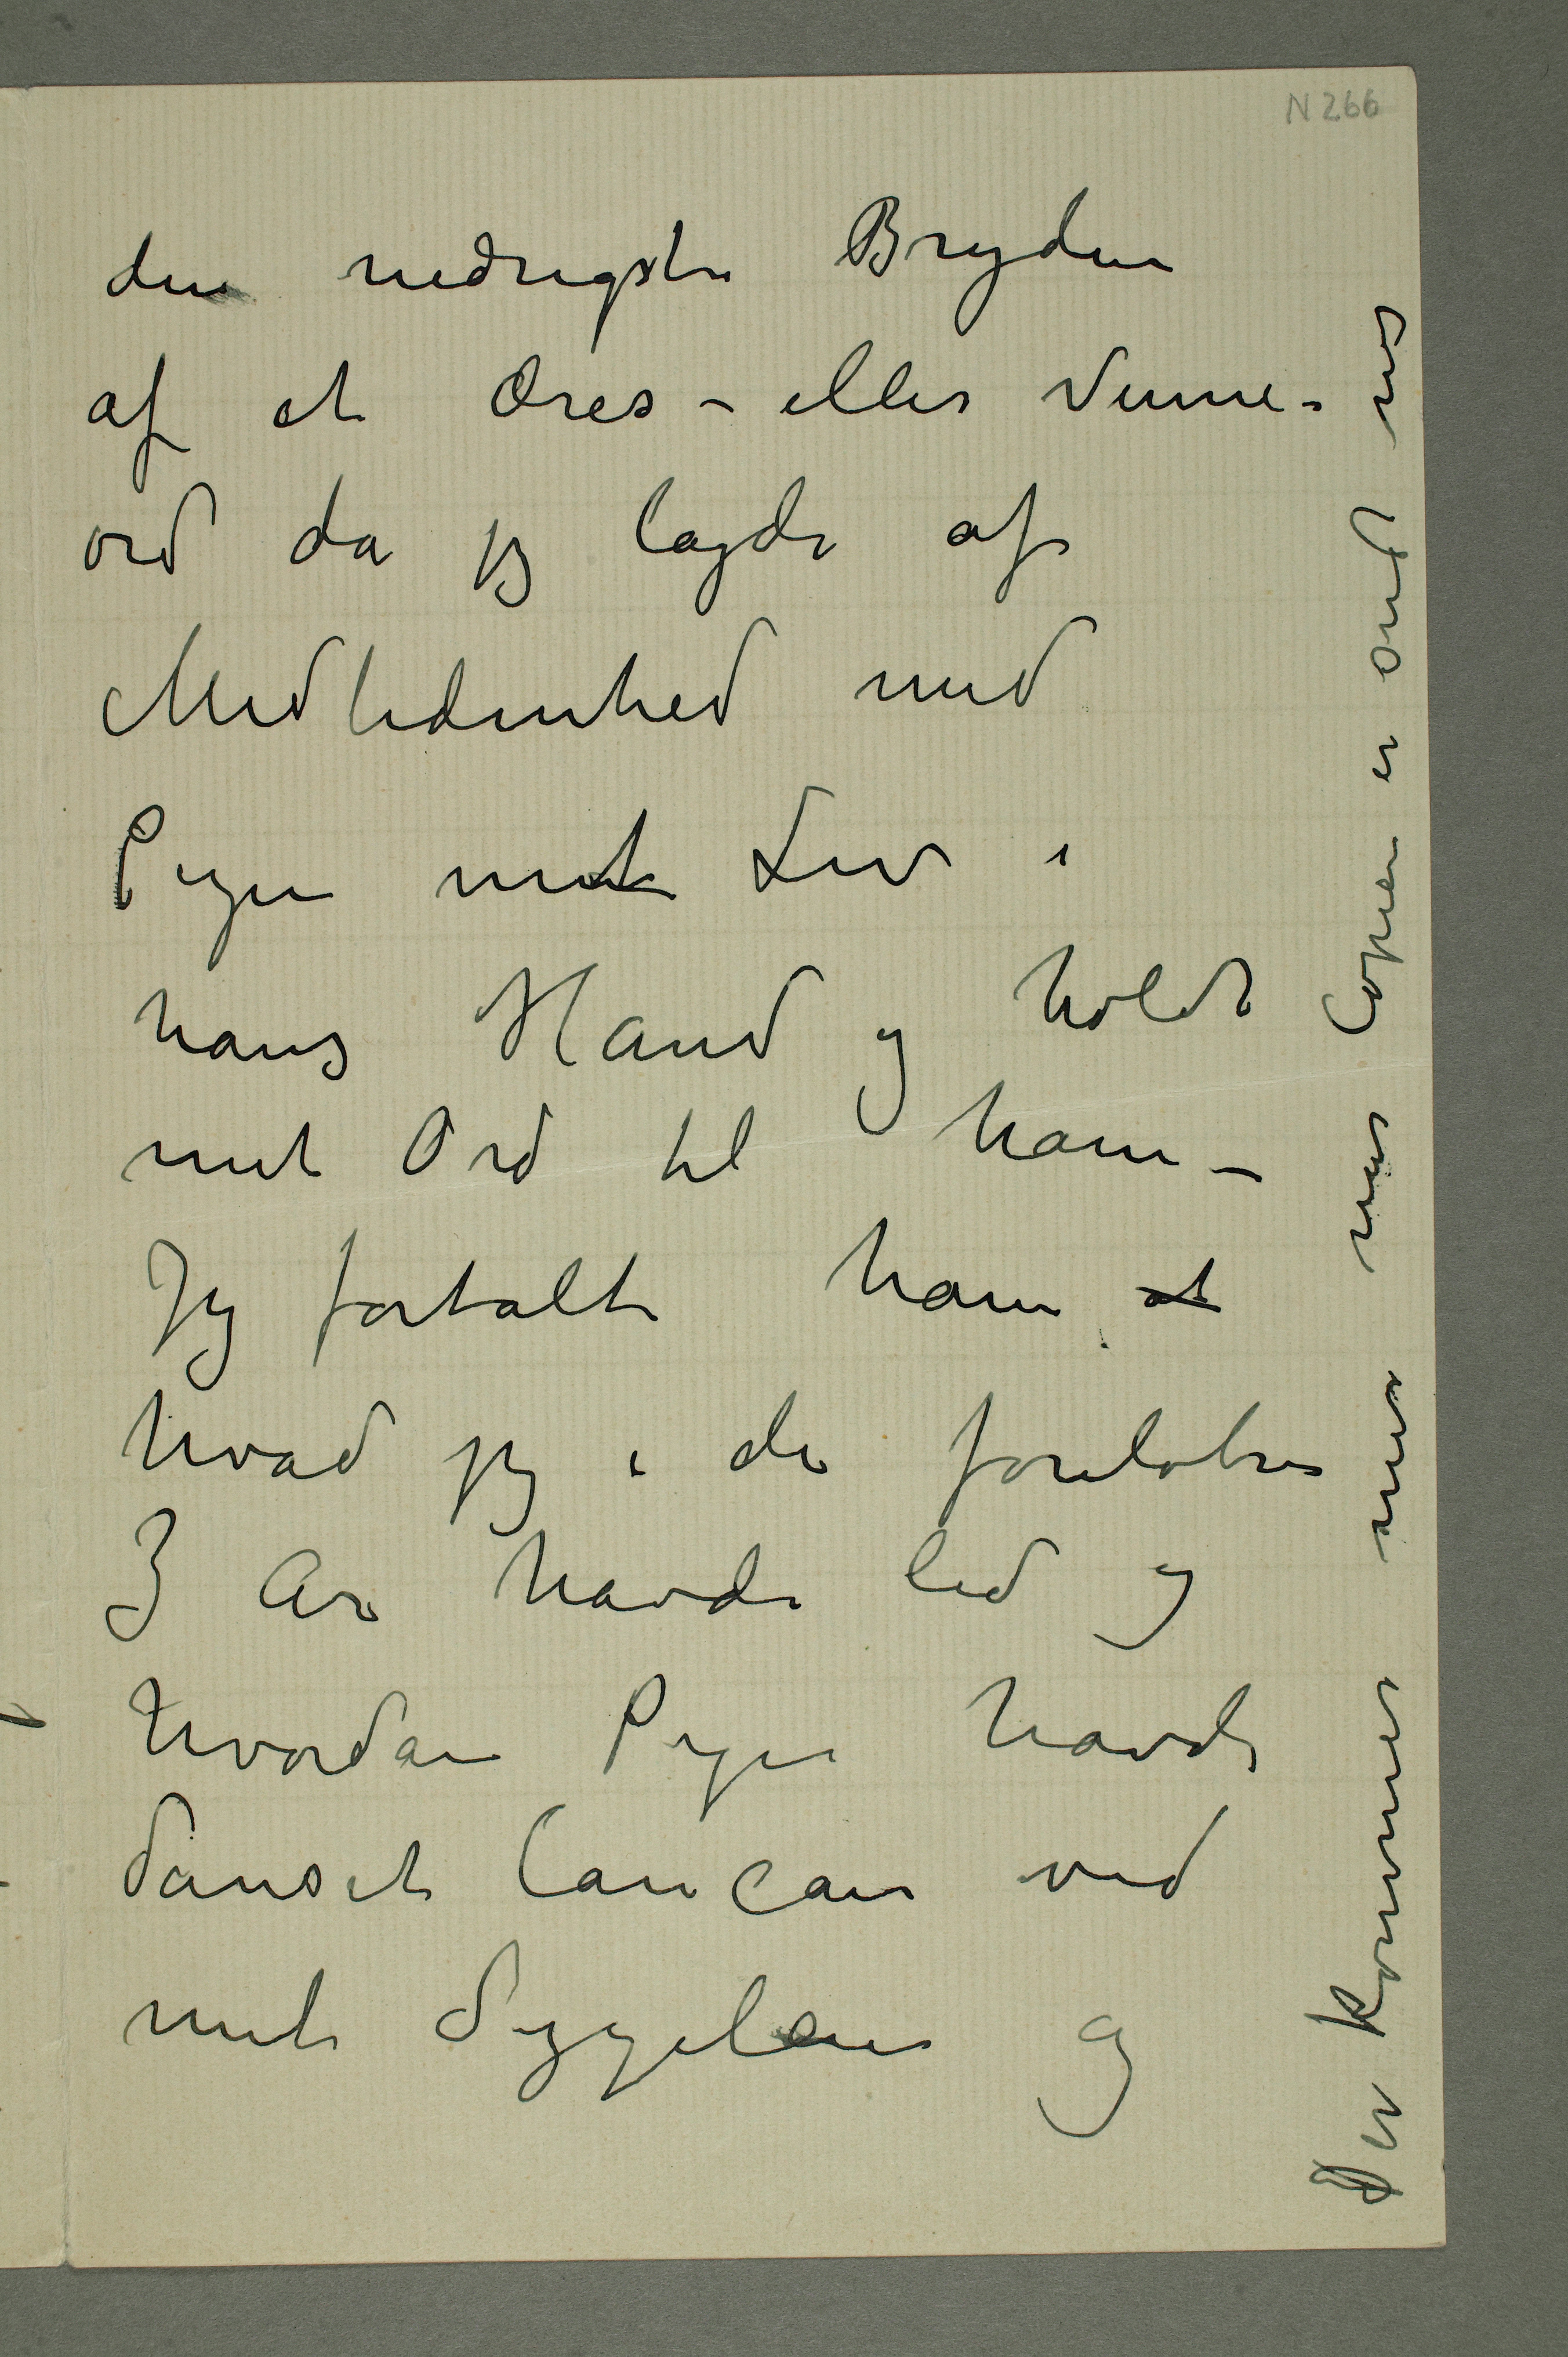 N 266
den nedrigste Bryden
af et Æres – eller Venne-
ord da jeg lagde af
Medlidenhed med
Pigen mit Liv i
hans Hand og holdt
mit Ord til ham –
Jeg fortalte ham at
hvad jeg i de foreløbne
3 Ar havde lid og
hvordan Pigen havde
danset Cancan ved
mit Sygeleie og
Der kommer mer mer Copien er ond